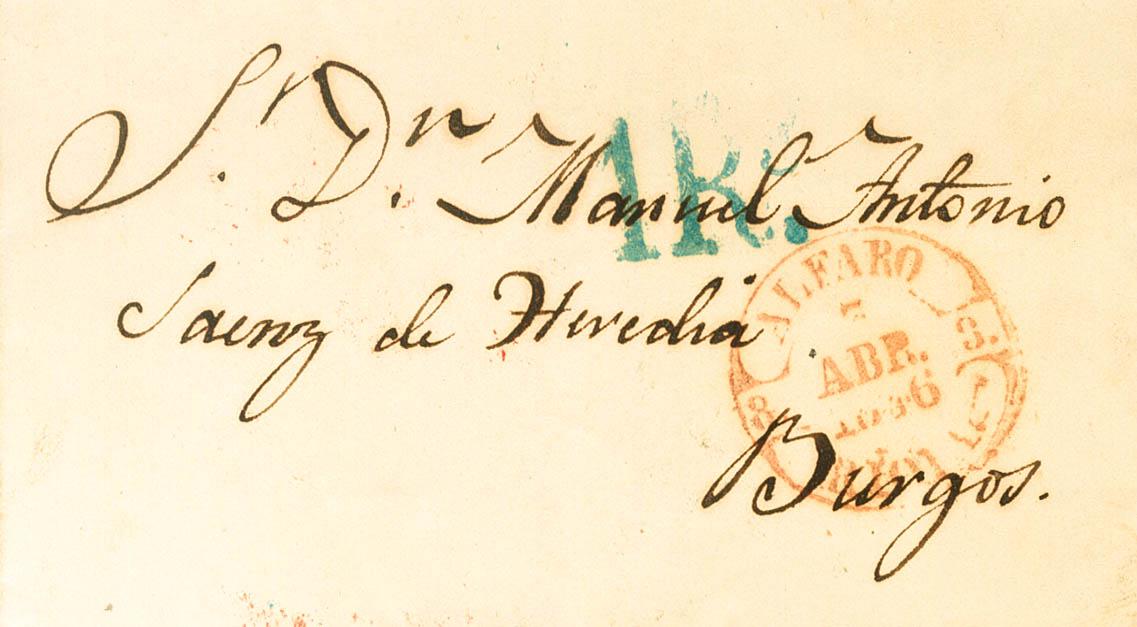 Sr. Dn. Manuel Antonio
1R.
Saenz de Heredia
ALFARO
ABR.
1846
Burgos.